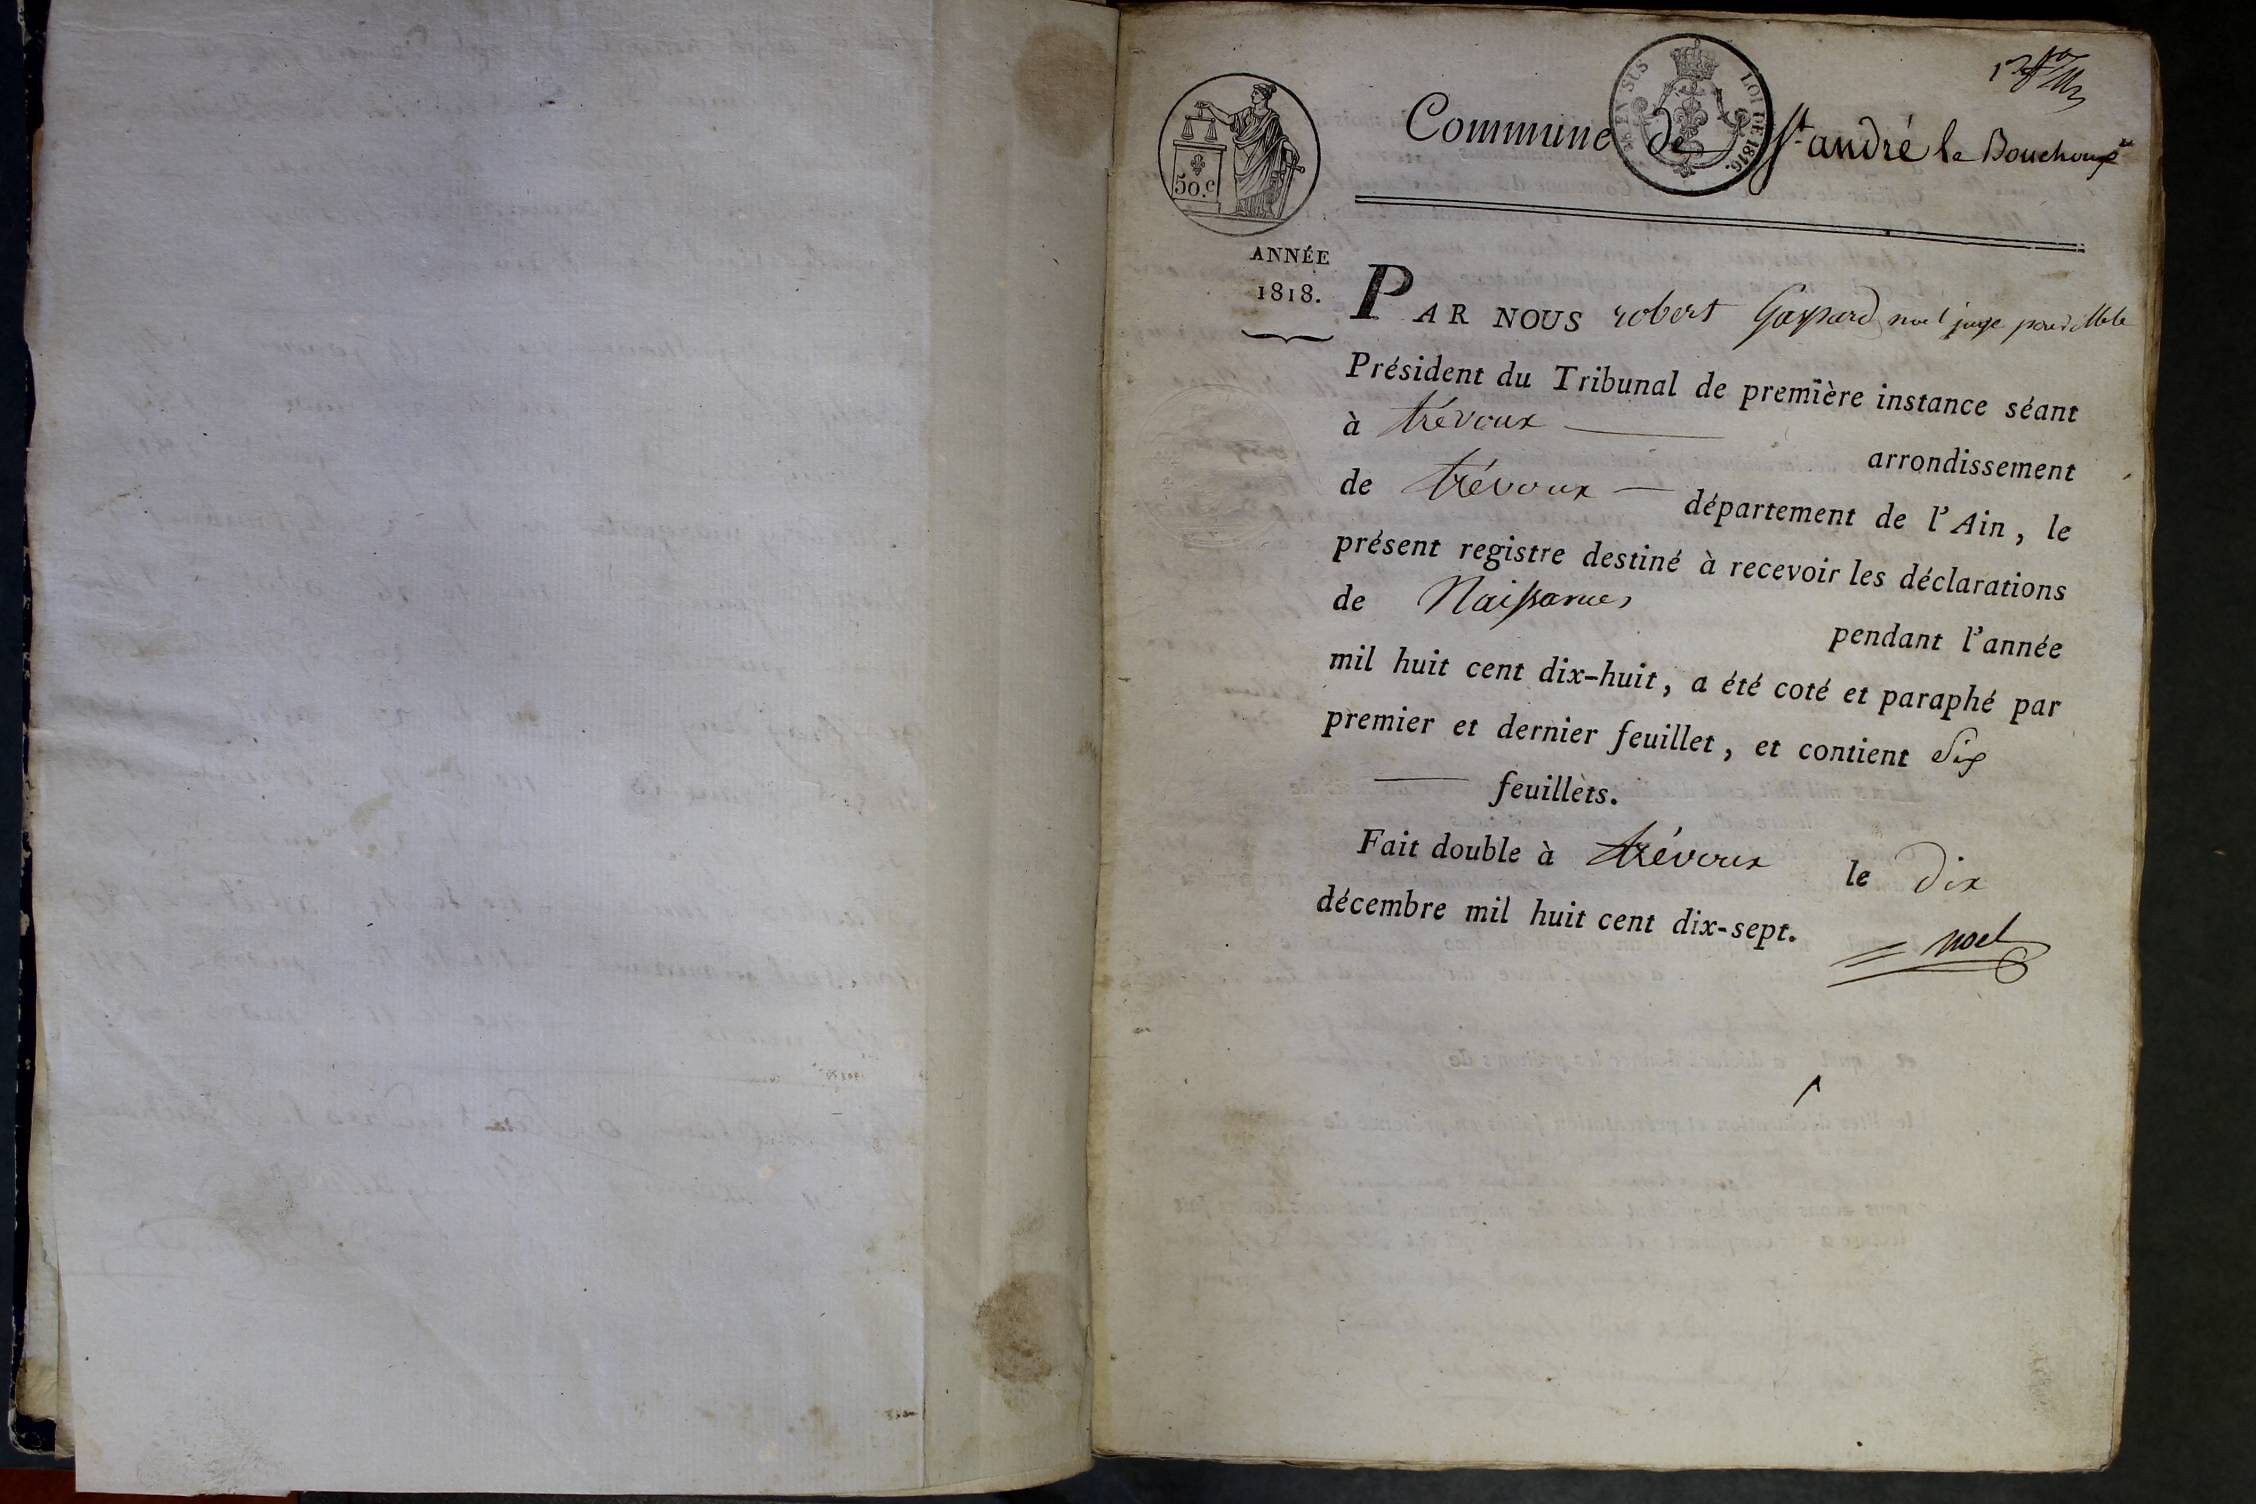 Commune de St andré le Bouchoux
50. c
EN SUS LOI DE 1816.
ANNÉE
1818.
PAR NOUS robert Gaspard noel juge pour
Président du Tribunal de première instance séant
à trévoux — arrondissement
de trévoux — département de l'Ain, le
présent registre destiné à recevoir les déclarations
de Naissances pendant l'année
mil huit cent dix-huit, a été coté et paraphé par
premier et dernier feuillet, et contient Six
— feuillets.
Fait double à trévoux le dix
décembre mil huit cent dix-sept.
noel